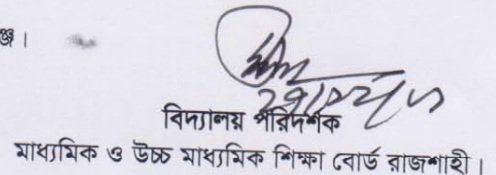 ঞ্জ।
বিদ্যালয় পরিদর্শক
মাধ্যমিক ও উচ্চ মাধ্যমিক শিক্ষা বোর্ড রাজশাহী।